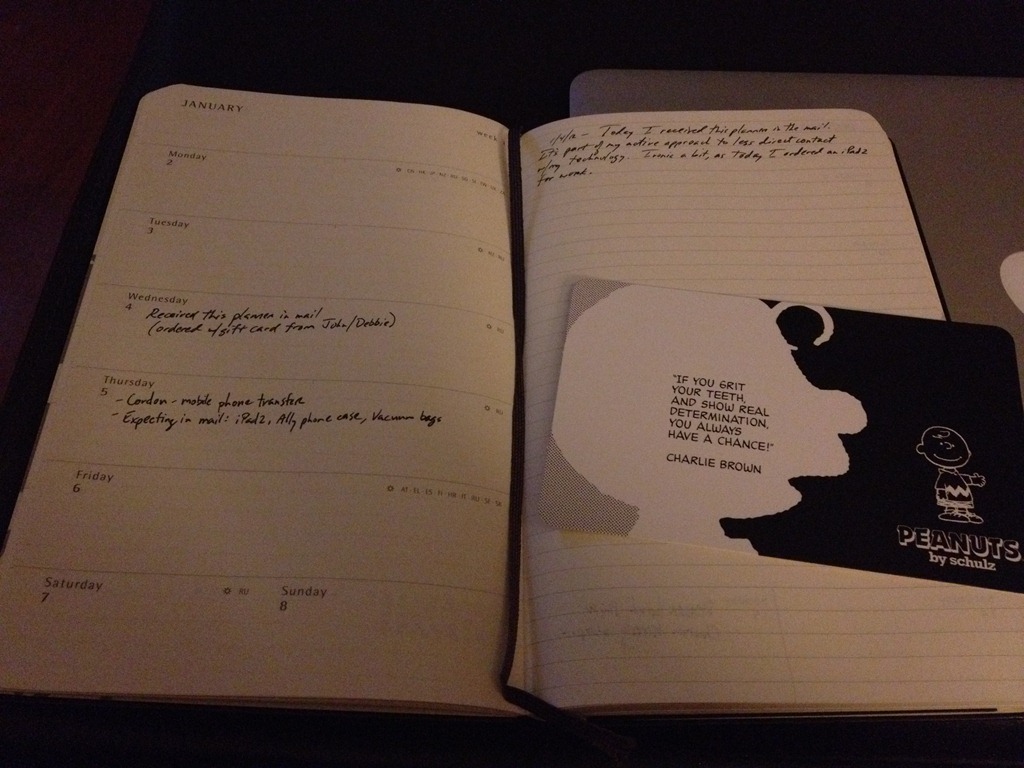 JANUARY
week
Monday
2
Tuesday
3
Wednesday
4
Received this planner in mail
(ordered w/gift card from John/Debbie)
Thursday
5
- Cordon - mobile phone transfer
- Expecting in mail: iPad2, Ally phone case, Vacuum bags
Friday
6
Saturday
7
RU
Sunday
8
1/4/12 - Today I received this planner in the mail.
It's part of my active approach to less direct contact
w/my technology. Ironic a bit, as today I ordered an iPad2
for work.
"IF YOU GRIT
YOUR TEETH,
AND SHOW REAL
DETERMINATION,
YOU ALWAYS
HAVE A CHANCE!"
CHARLIE BROWN
PEANUTS
by schulz